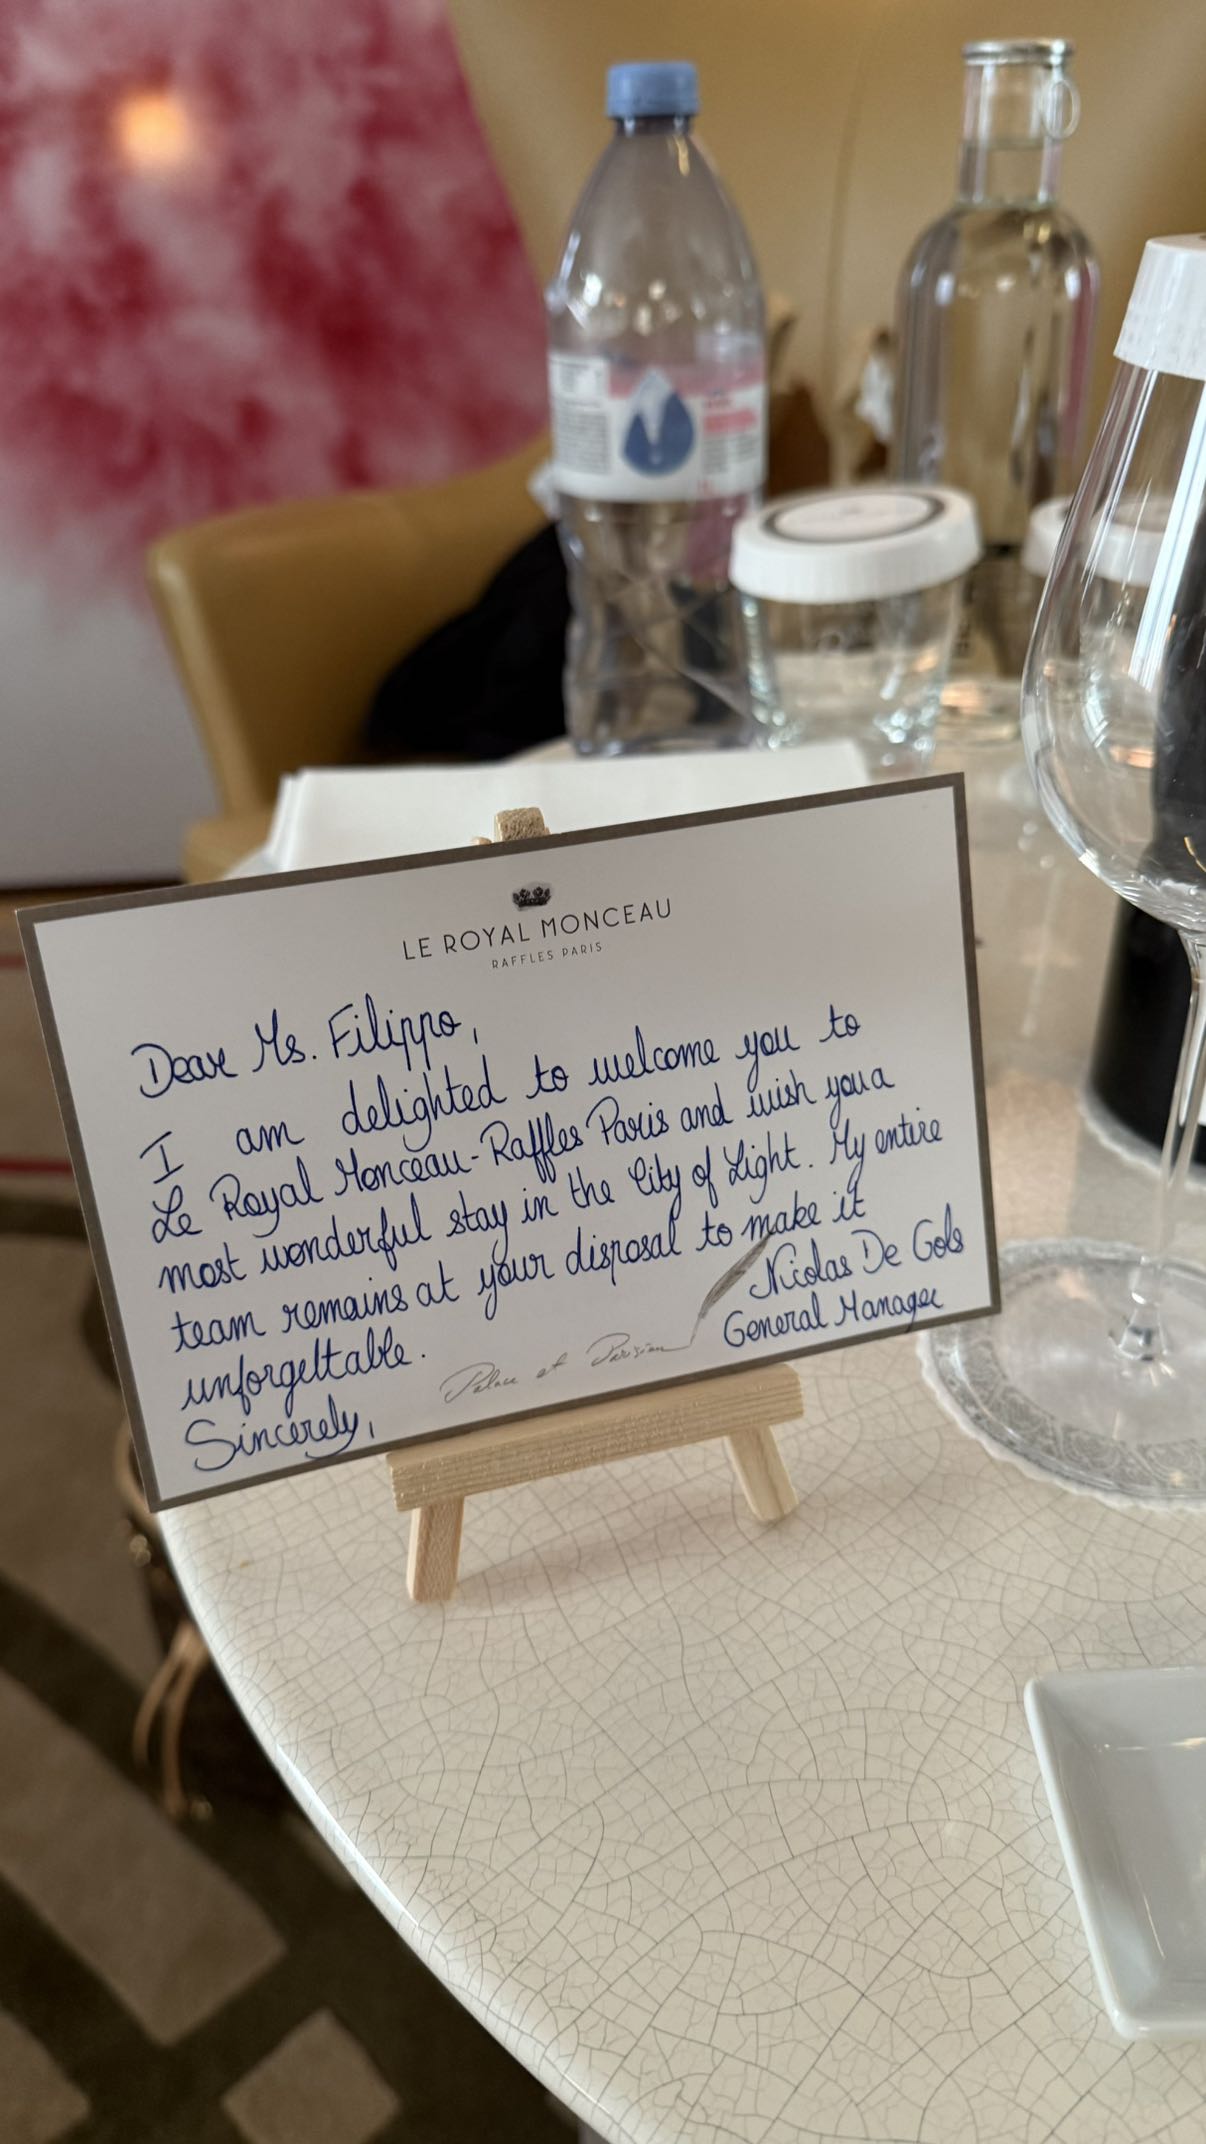 LE ROYAL MONCEAU
RAFFLES PARIS
Dear Ms. Filippo,
I am delighted to welcome you to
Le Royal Monceau-Raffles Paris and wish you a
most wonderful stay in the City of Light. My entire
team remains at your disposal to make it
unforgettable.
Sincerely,
Nicolas De Gols
General Manager
Palace et Parisien